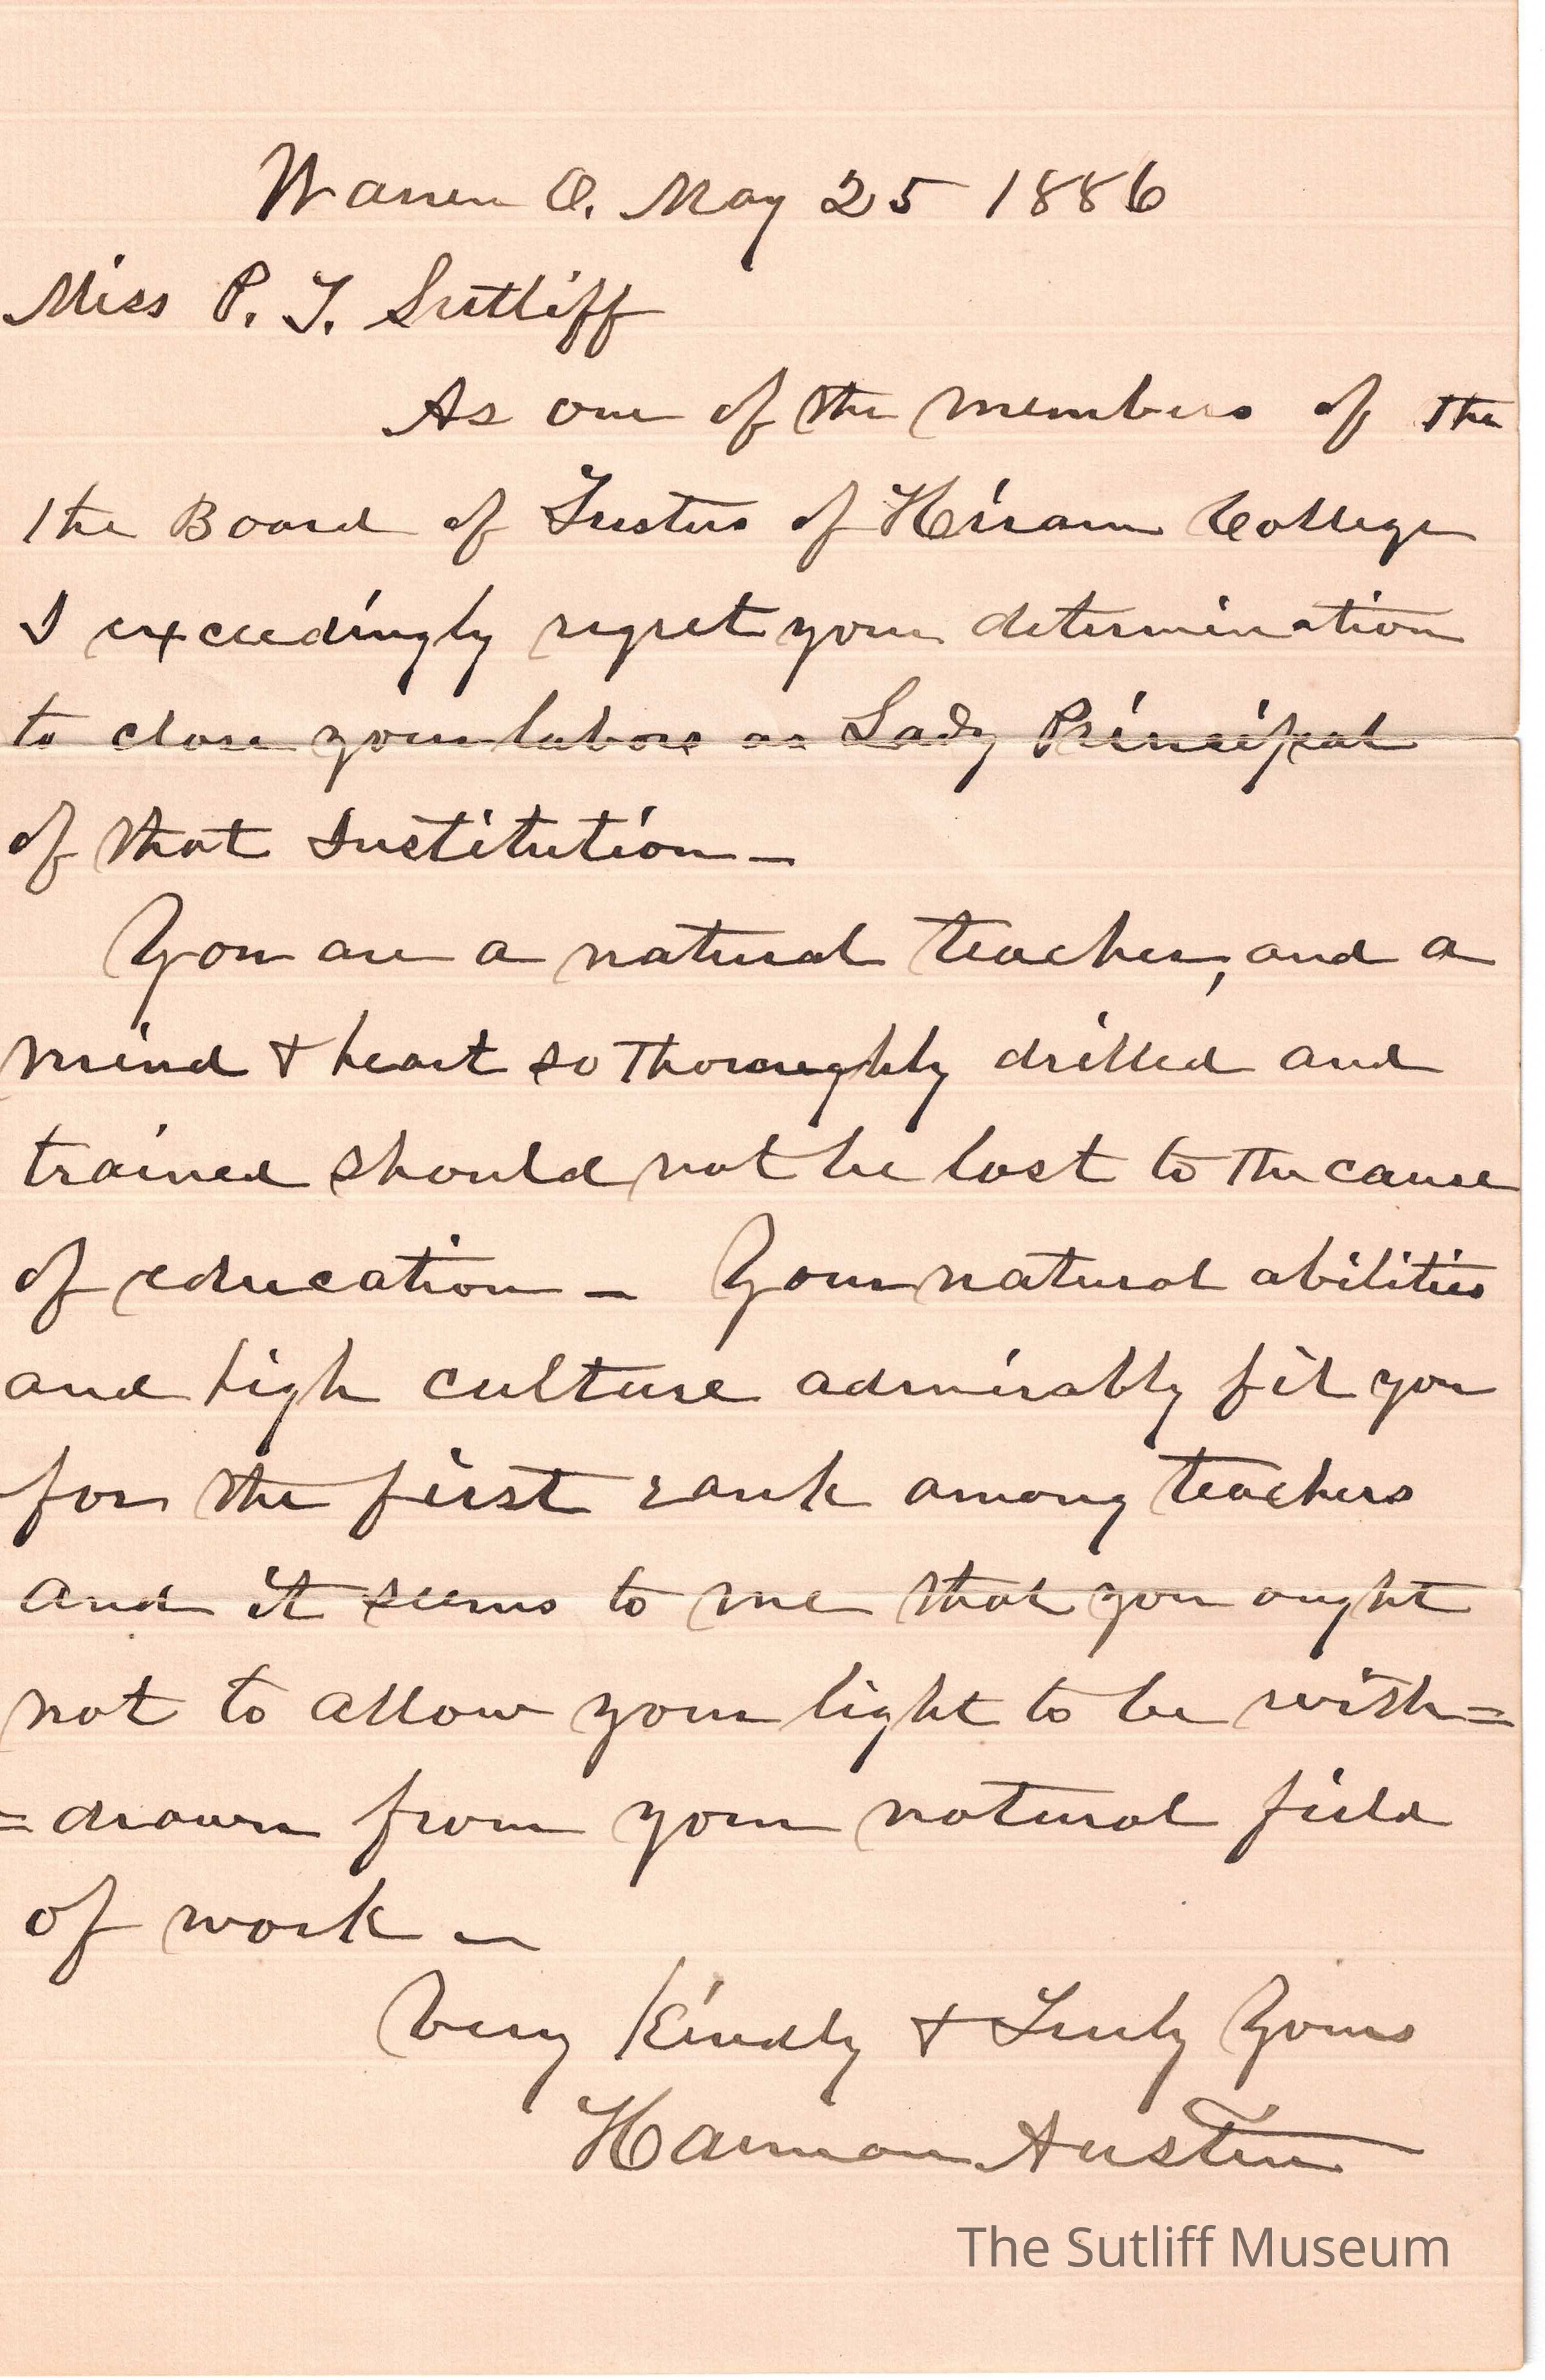 Warren O. May 25 1886
Miss P. T. Sutliff
As one of the members of the
the Board of Trustees of Hiram College
I exceedingly regret your determination
to close your labors as Lady Principal
of that Institution—
You are a natural teacher, and a
mind & heart so thoroughly drilled and
trained should not be lost to the cause
of education — Your natural abilities
and high culture admirably fit you
for the first rank among teachers
and it seems to me that you ought
not to allow your light to be with=
=drawn from your natural field
of work —
Very Kindly & Truly Yours
Harmon Austin
The Sutliff Museum